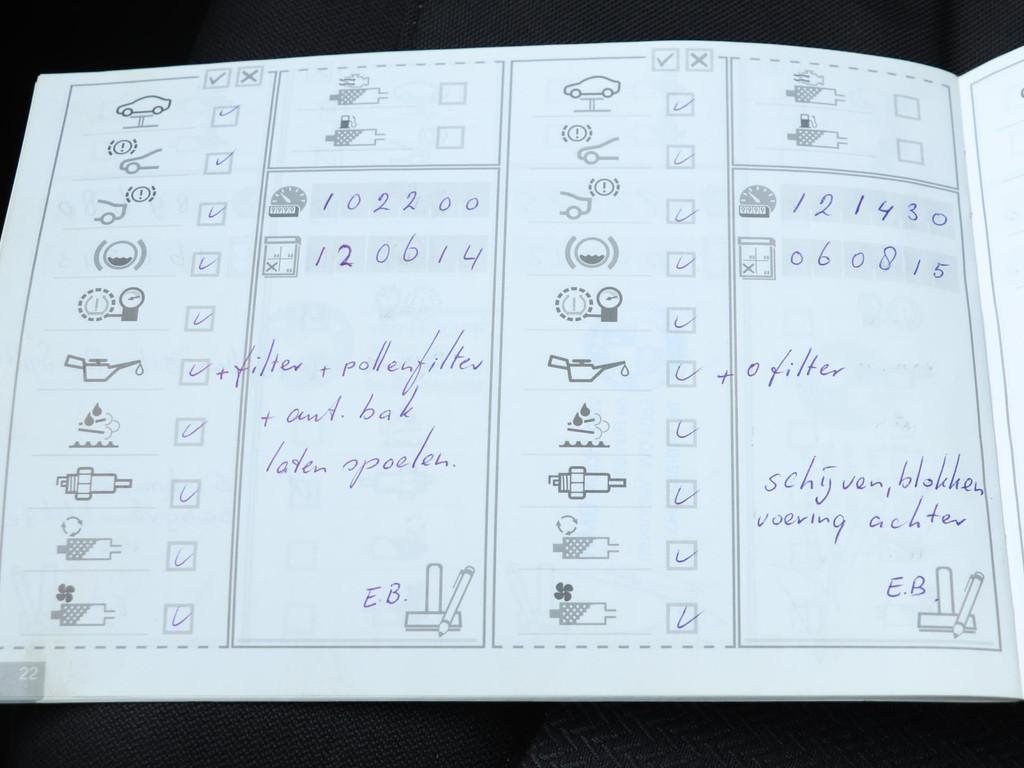 102200
120614
+ filter + pollenfilter
+ aut. bak
laten spoelen.
E.B.
121430
060815
+ o filter
schijven, blokken
voering achter
E.B.
22